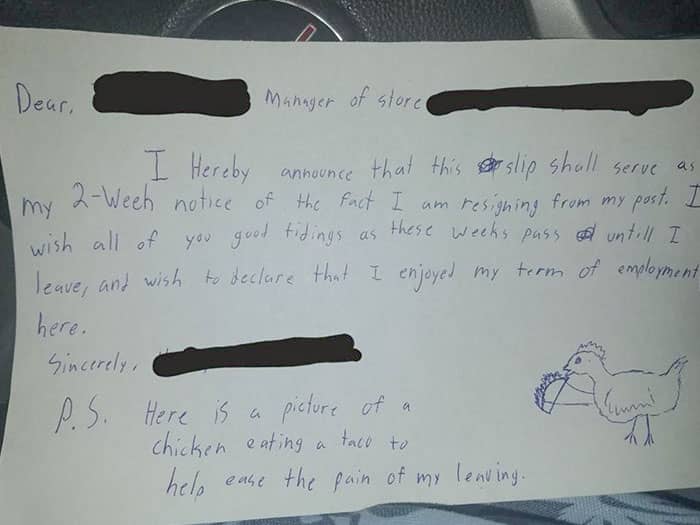 Dear, Manager of store
I Hereby announce that this slip shall serve as
my 2-Week notice of the fact I am resigning from my post. I
wish all of you good tidings as these weeks pass untill I
leave, and wish to declare that I enjoyed my term of employment
here.
Sincerely,
P.S. Here is a picture of a
chicken eating a taco to
help ease the pain of my leaving.